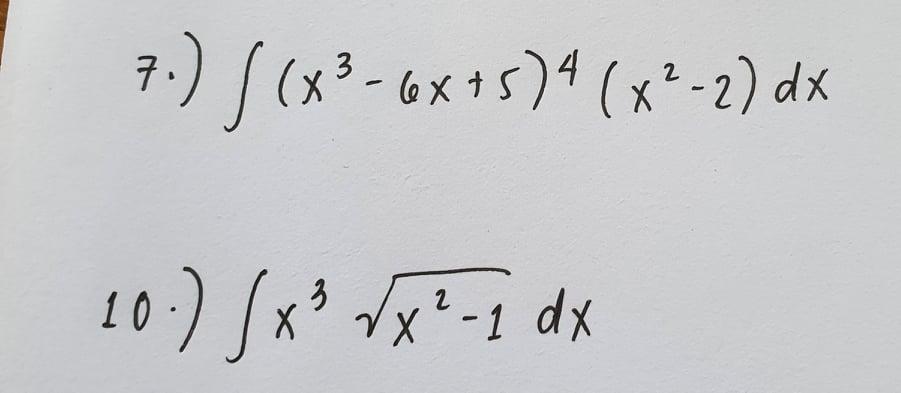 7.) ∫ (x³ - 6x + 5)⁴ (x² - 2) dx
10.) ∫ x³ √(x² - 1) dx